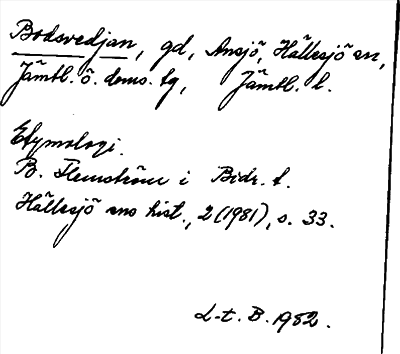 Bodsvedjan, gd, Ansjö, Hällesjö sn,
Jämtl. ö. doms. tg, Jämtl. l.
Etymologi.
B. Flemström i Bidr. t.
Hällesjö sns hist., 2 (1981), s. 33.
L-t. B. 1982.